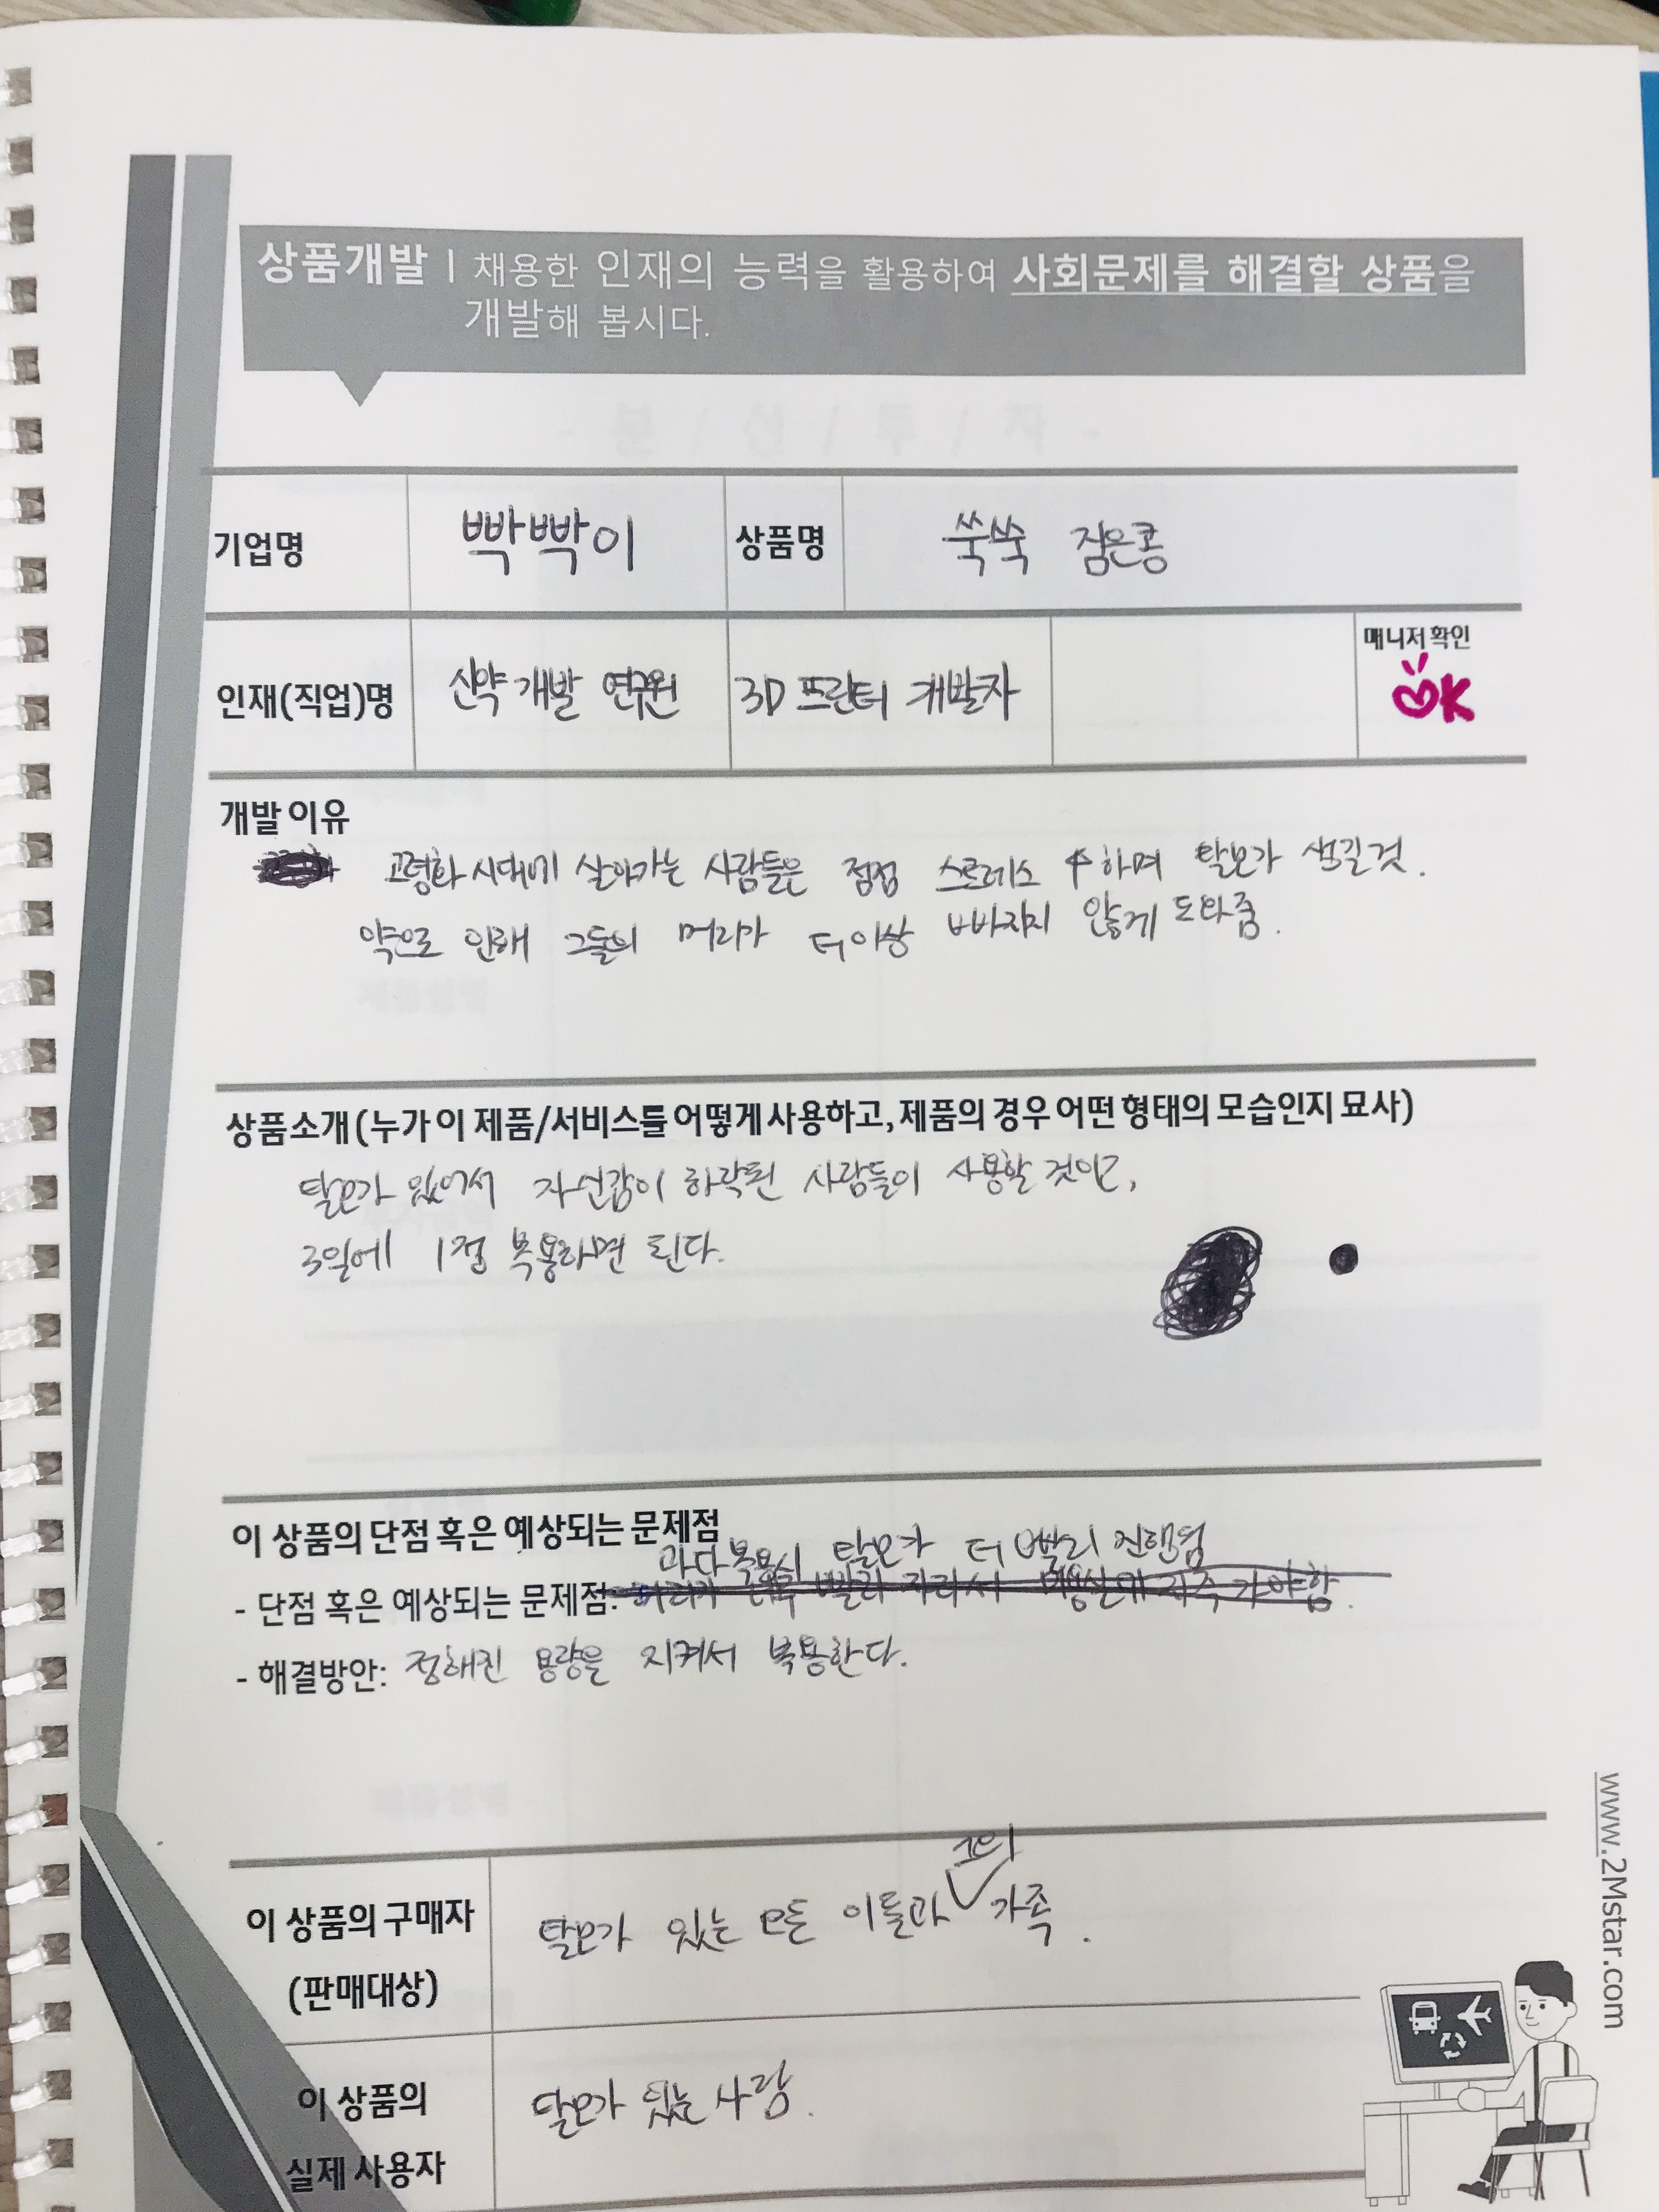 상품개발 | 채용한 인재의 능력을 활용하여 사회문제를 해결할 상품을
개발해 봅시다.
기업명 빡빡이 상품명 쑥쑥 검은콩
인재(직업)명 신약 개발 연구원 3D 프린터 개발자 매니저 확인 OK
개발 이유
고령화 시대에 살아가는 사람들은 점점 스트레스 ↑하며 탈모가 생길것.
약으로 인해 그들의 머리가 더이상 빠지지 않게 도와줌.
상품소개 (누가 이 제품/서비스를 어떻게 사용하고, 제품의 경우 어떤 형태의 모습인지 묘사)
탈모가 있어서 자신감이 하락된 사람들이 사용할 것이고,
3일에 1정 복용하면 된다.
이 상품의 단점 혹은 예상되는 문제점
과다복용시 탈모가 더 빨리 진행됨
- 단점 혹은 예상되는 문제점: 머리가 빨리 자라서 미용실에 자주 가야함.
- 해결방안: 정해진 용량을 지켜서 복용한다.
이 상품의 구매자
(판매대상)
탈모가 있는 모든 이들과 그의 가족.
이 상품의
실제 사용자
탈모가 있는 사람.
www.2Mstar.com